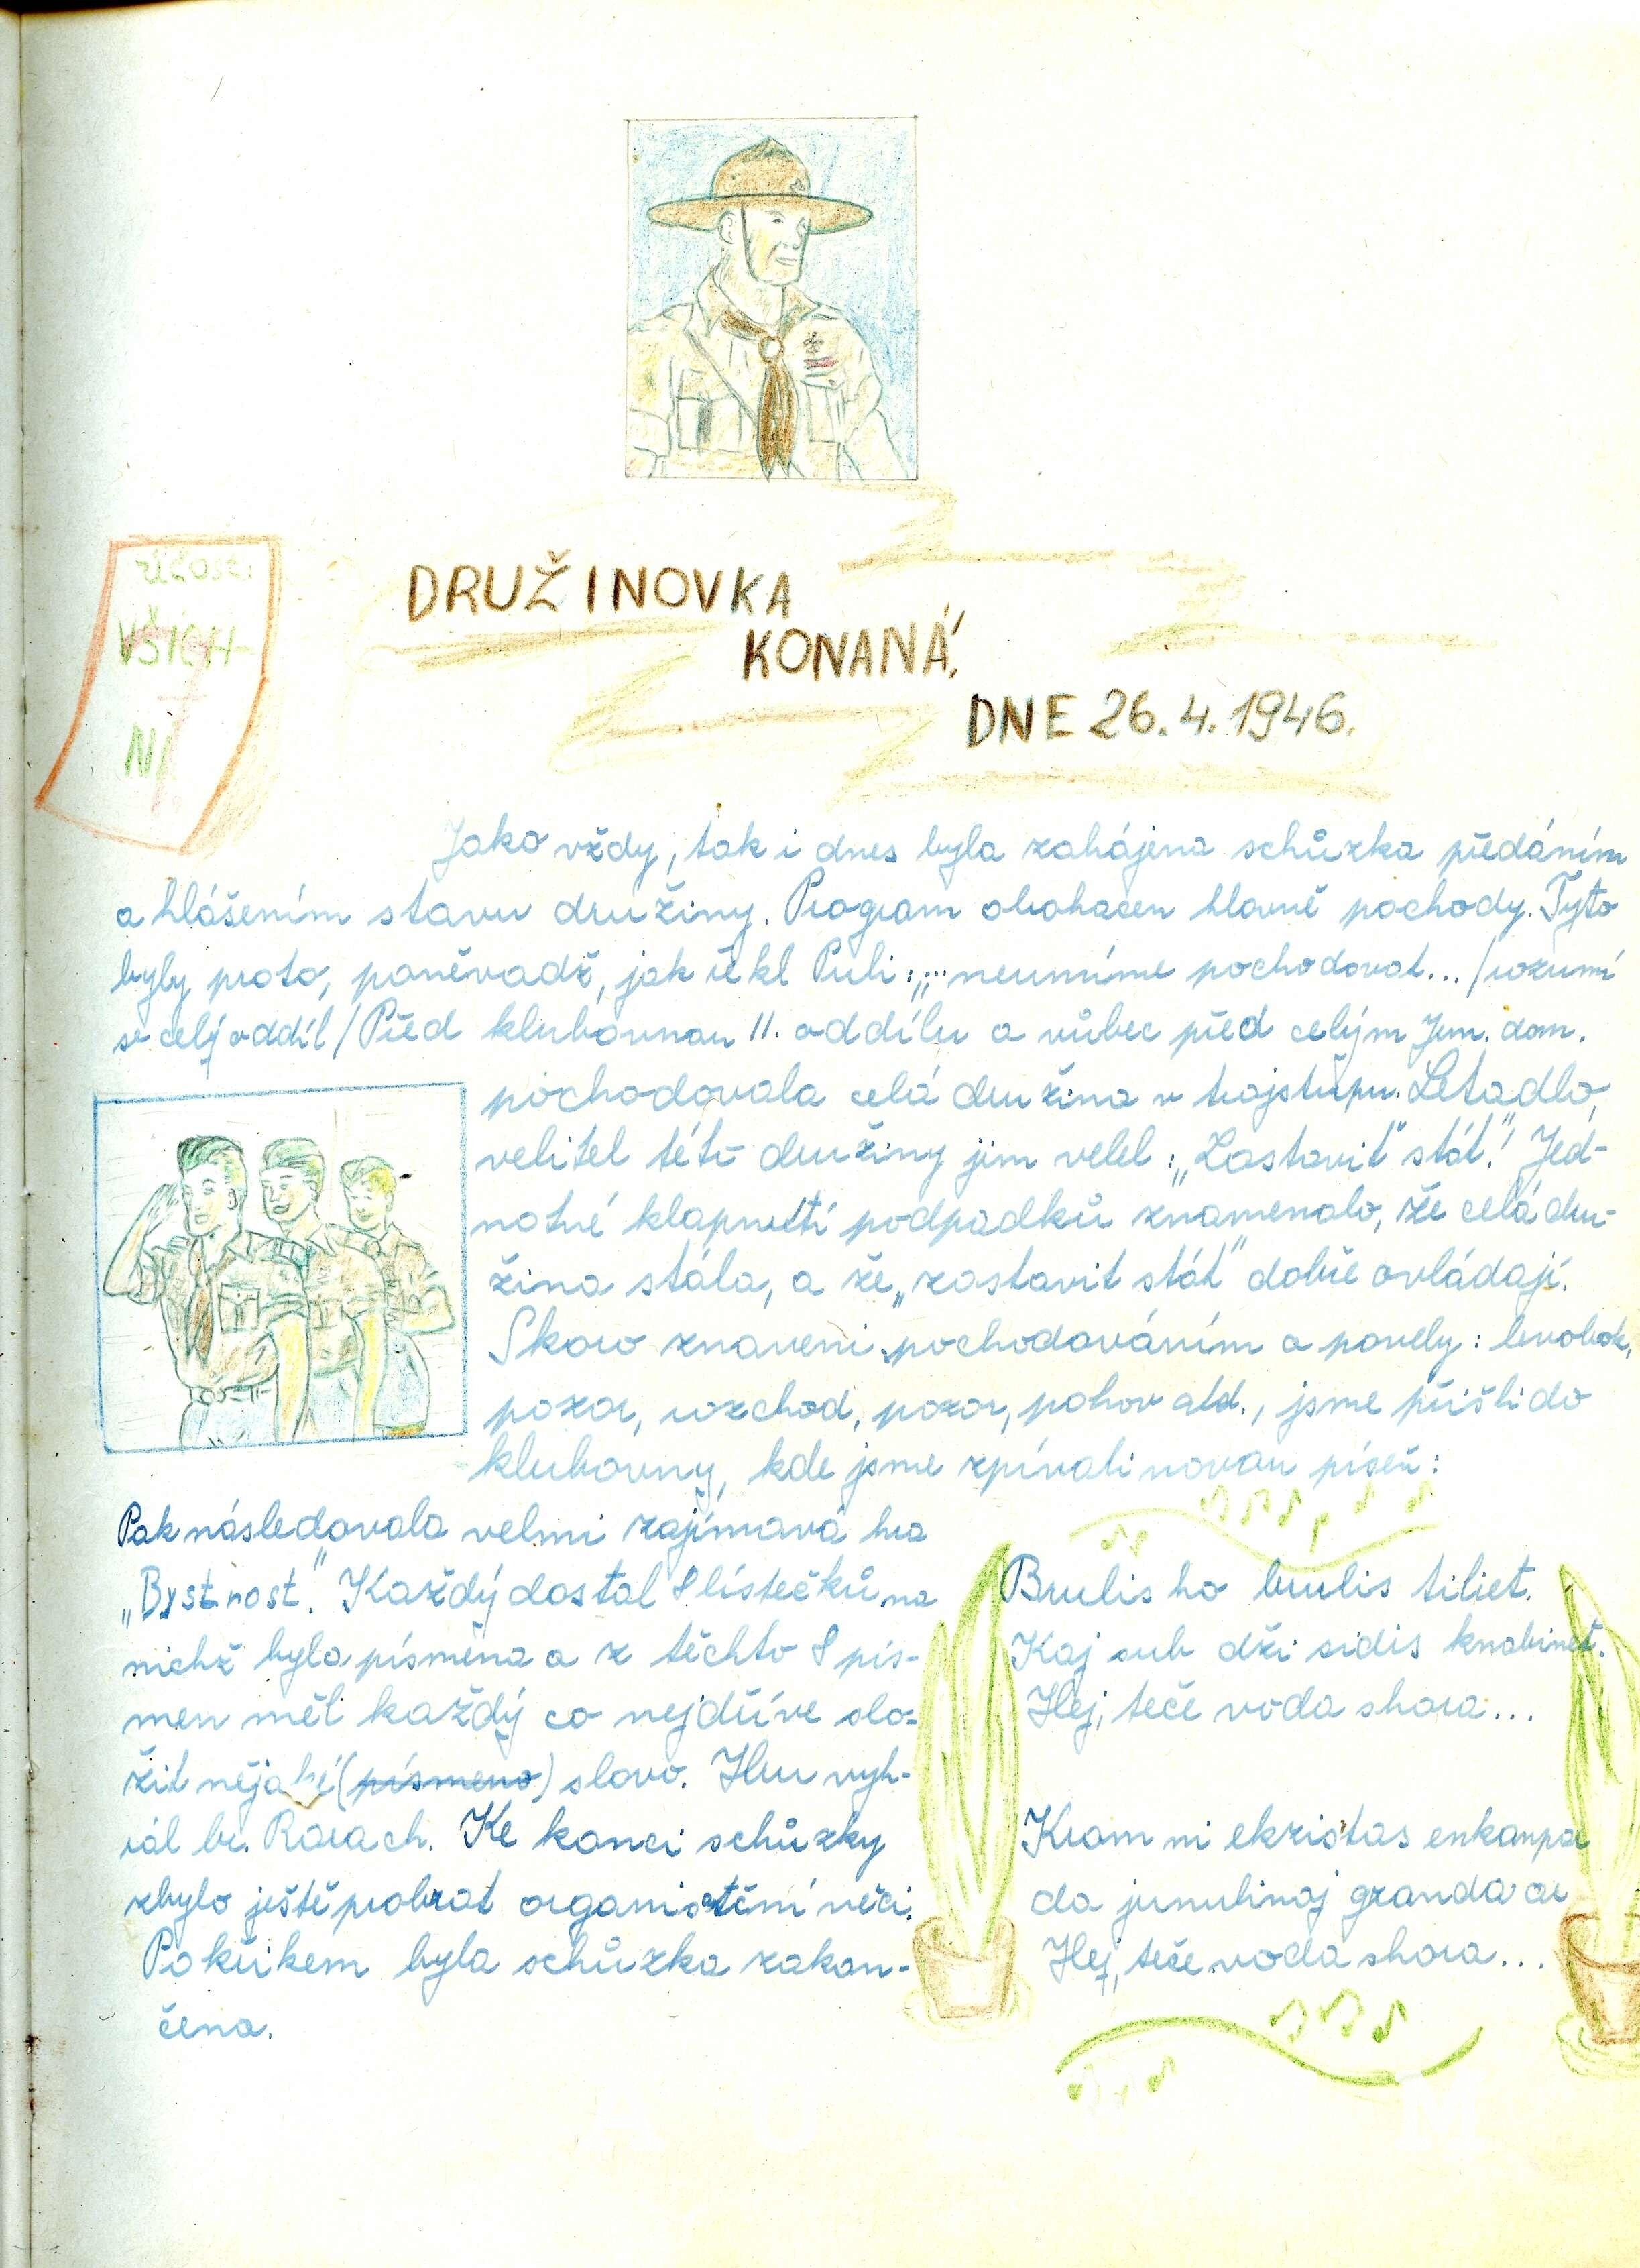 účast:
VŠICH-
NI
DRUŽINOVKA
KONANÁ
DNE 26.4.1946.
Jako vždy, tak i dnes byla zahájena schůzka předáním
a hlášením stavu družiny. Program obohacen hlavně pochody. Tyto
byly proto, poněvadž, jak řekl Puli: „... neumíme pochodovat... /rozumí
se celý oddíl/ Před klubovnou 11. oddílu a vůbec před celým Jun. dom.
pochodovala celá družina v trojstupu. Letadlo,
velitel této družiny jim velel: „Zastavit stát"! Jed-
notné klapnutí podpadků znamenalo, že celá dru-
žina stála, a že „zastavit stát" dobře ovládají.
Skoro znaveni pochodováním a povely: levobok,
pozor, rozchod, pozor, pohov atd., jsme přišli do
klubovny, kde jsme zpívali novou píseň:
Pak následovala velmi zajímavá hra
„Bystrost". Každý dostal 8 lístečků na
nichž byla písmena a z těchto 8 pís-
men měl každý co nejdříve slo-
žit nějaké (písmeno) slovo. Hru vyh-
rál br. Rorach. Ke konci schůzky
zbylo ještě probrat organisační věci.
Pokřikem byla schůzka zakon-
čena.
Brulis ho brulis tiliet.
Kaj sub dži sidis knabinet.
Hej, teče voda shora...
Krom ni ekzistas enkampa
da junulinoj granda ar
Hej, teče voda shora...